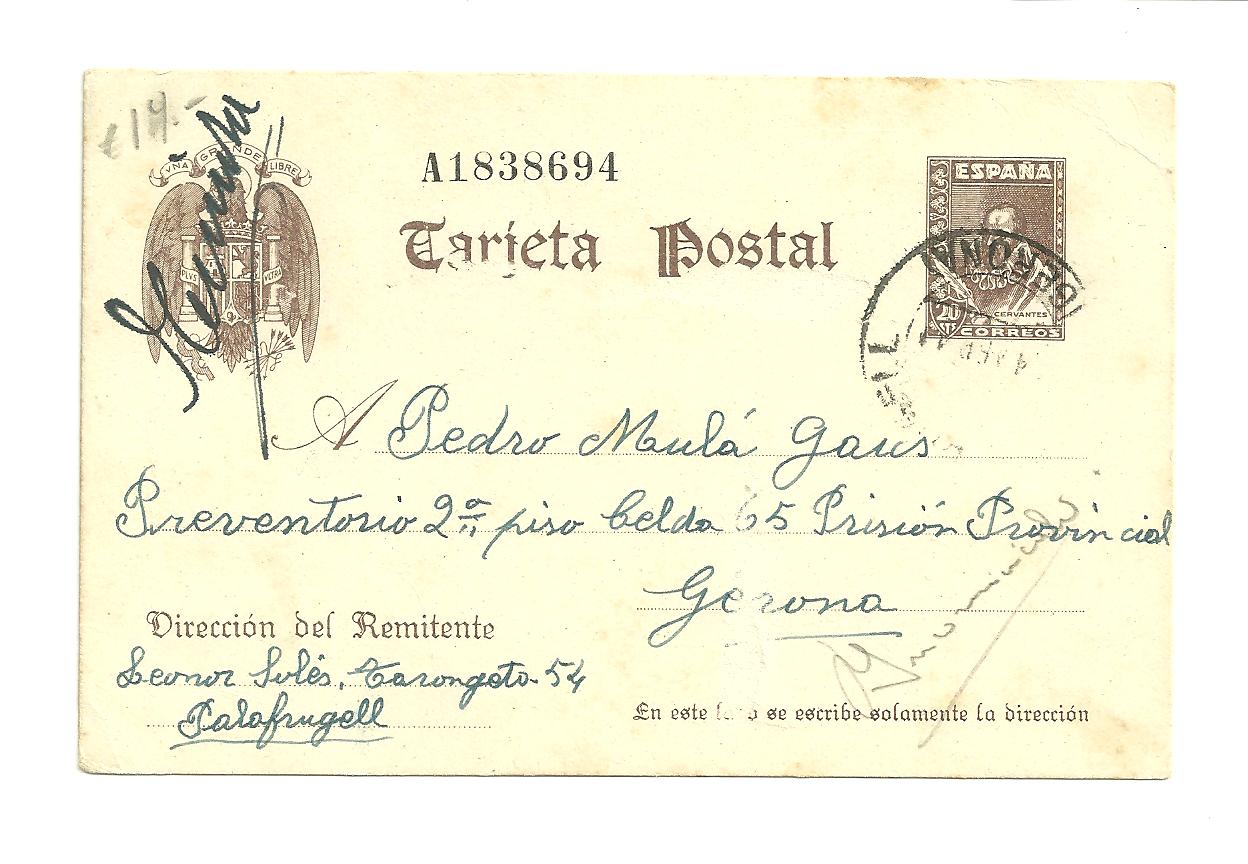 €19.-
UNA GRANDE LIBRE
PLUS ULTRA
A1838694
Tarjeta Postal
ESPAÑA
CERVANTES
20 CTS
CORREOS
GERONA
A Pedro Mulá Gaus
Preventorio 2º piso Celda 65 Prisión Provincial
Gerona
Dirección del Remitente
Leonor Solés, Tarongeta 54
Palafrugell
En este lado se escribe solamente la dirección